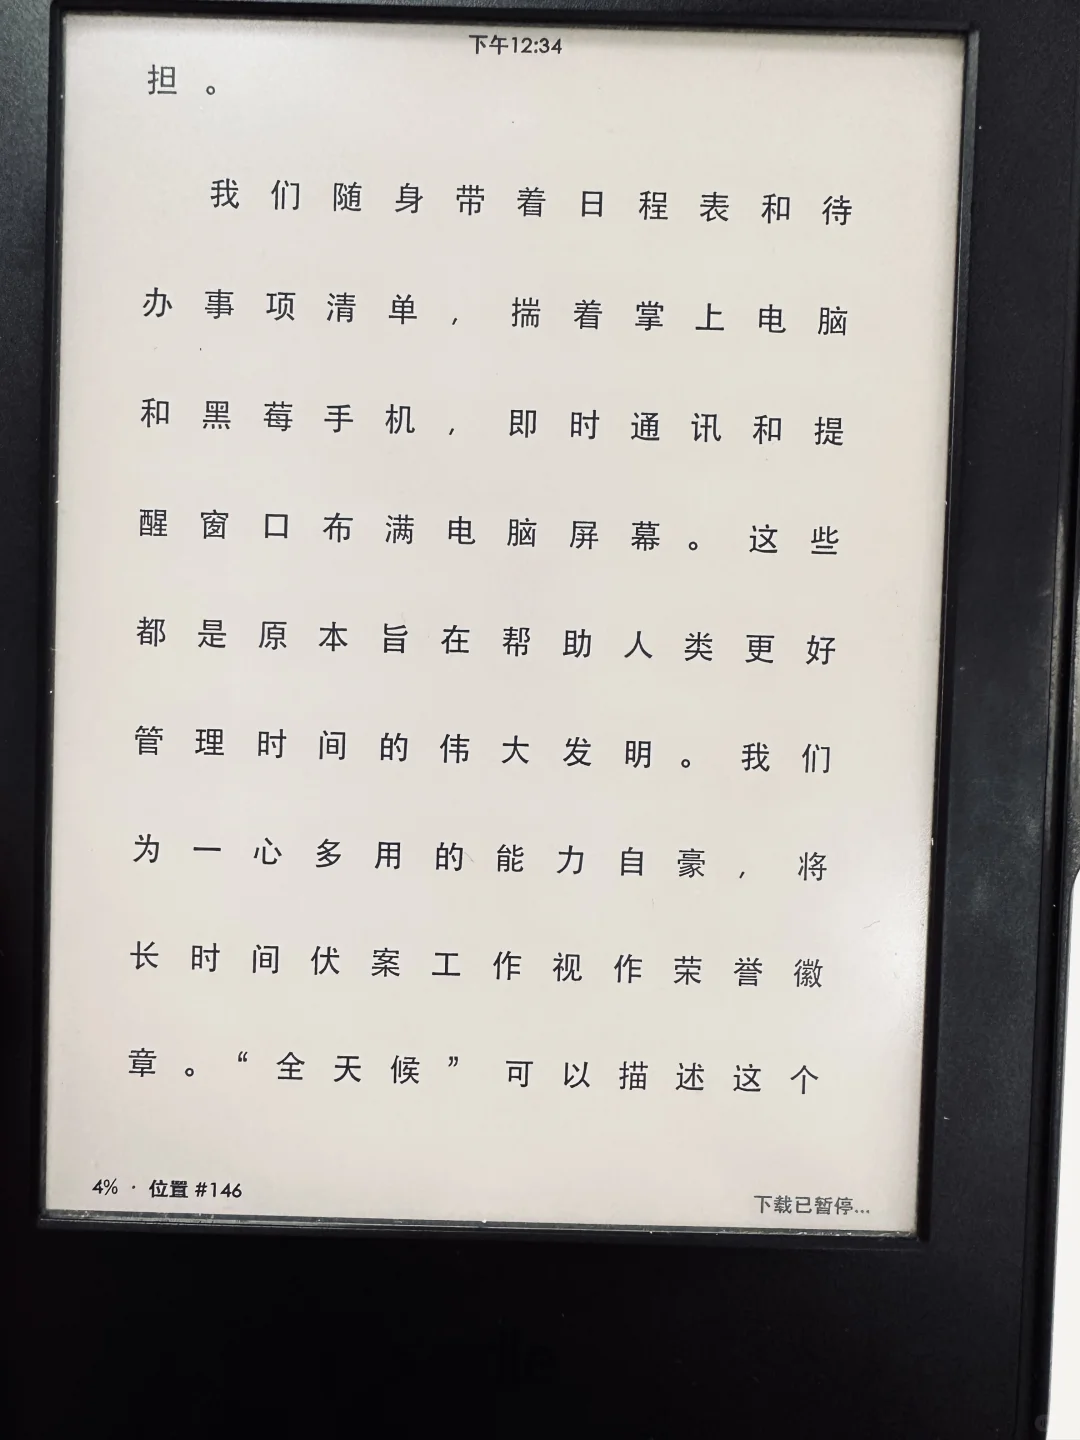 下午12:34
担。
我们随身带着日程表和待
办事项清单，揣着掌上电脑
和黑莓手机，即时通讯和提
醒窗口布满电脑屏幕。这些
都是原本旨在帮助人类更好
管理时间的伟大发明。我们
为一心多用的能力自豪，将
长时间伏案工作视作荣誉徽
章。“全天候”可以描述这个
4% · 位置 #146
下载已暂停...